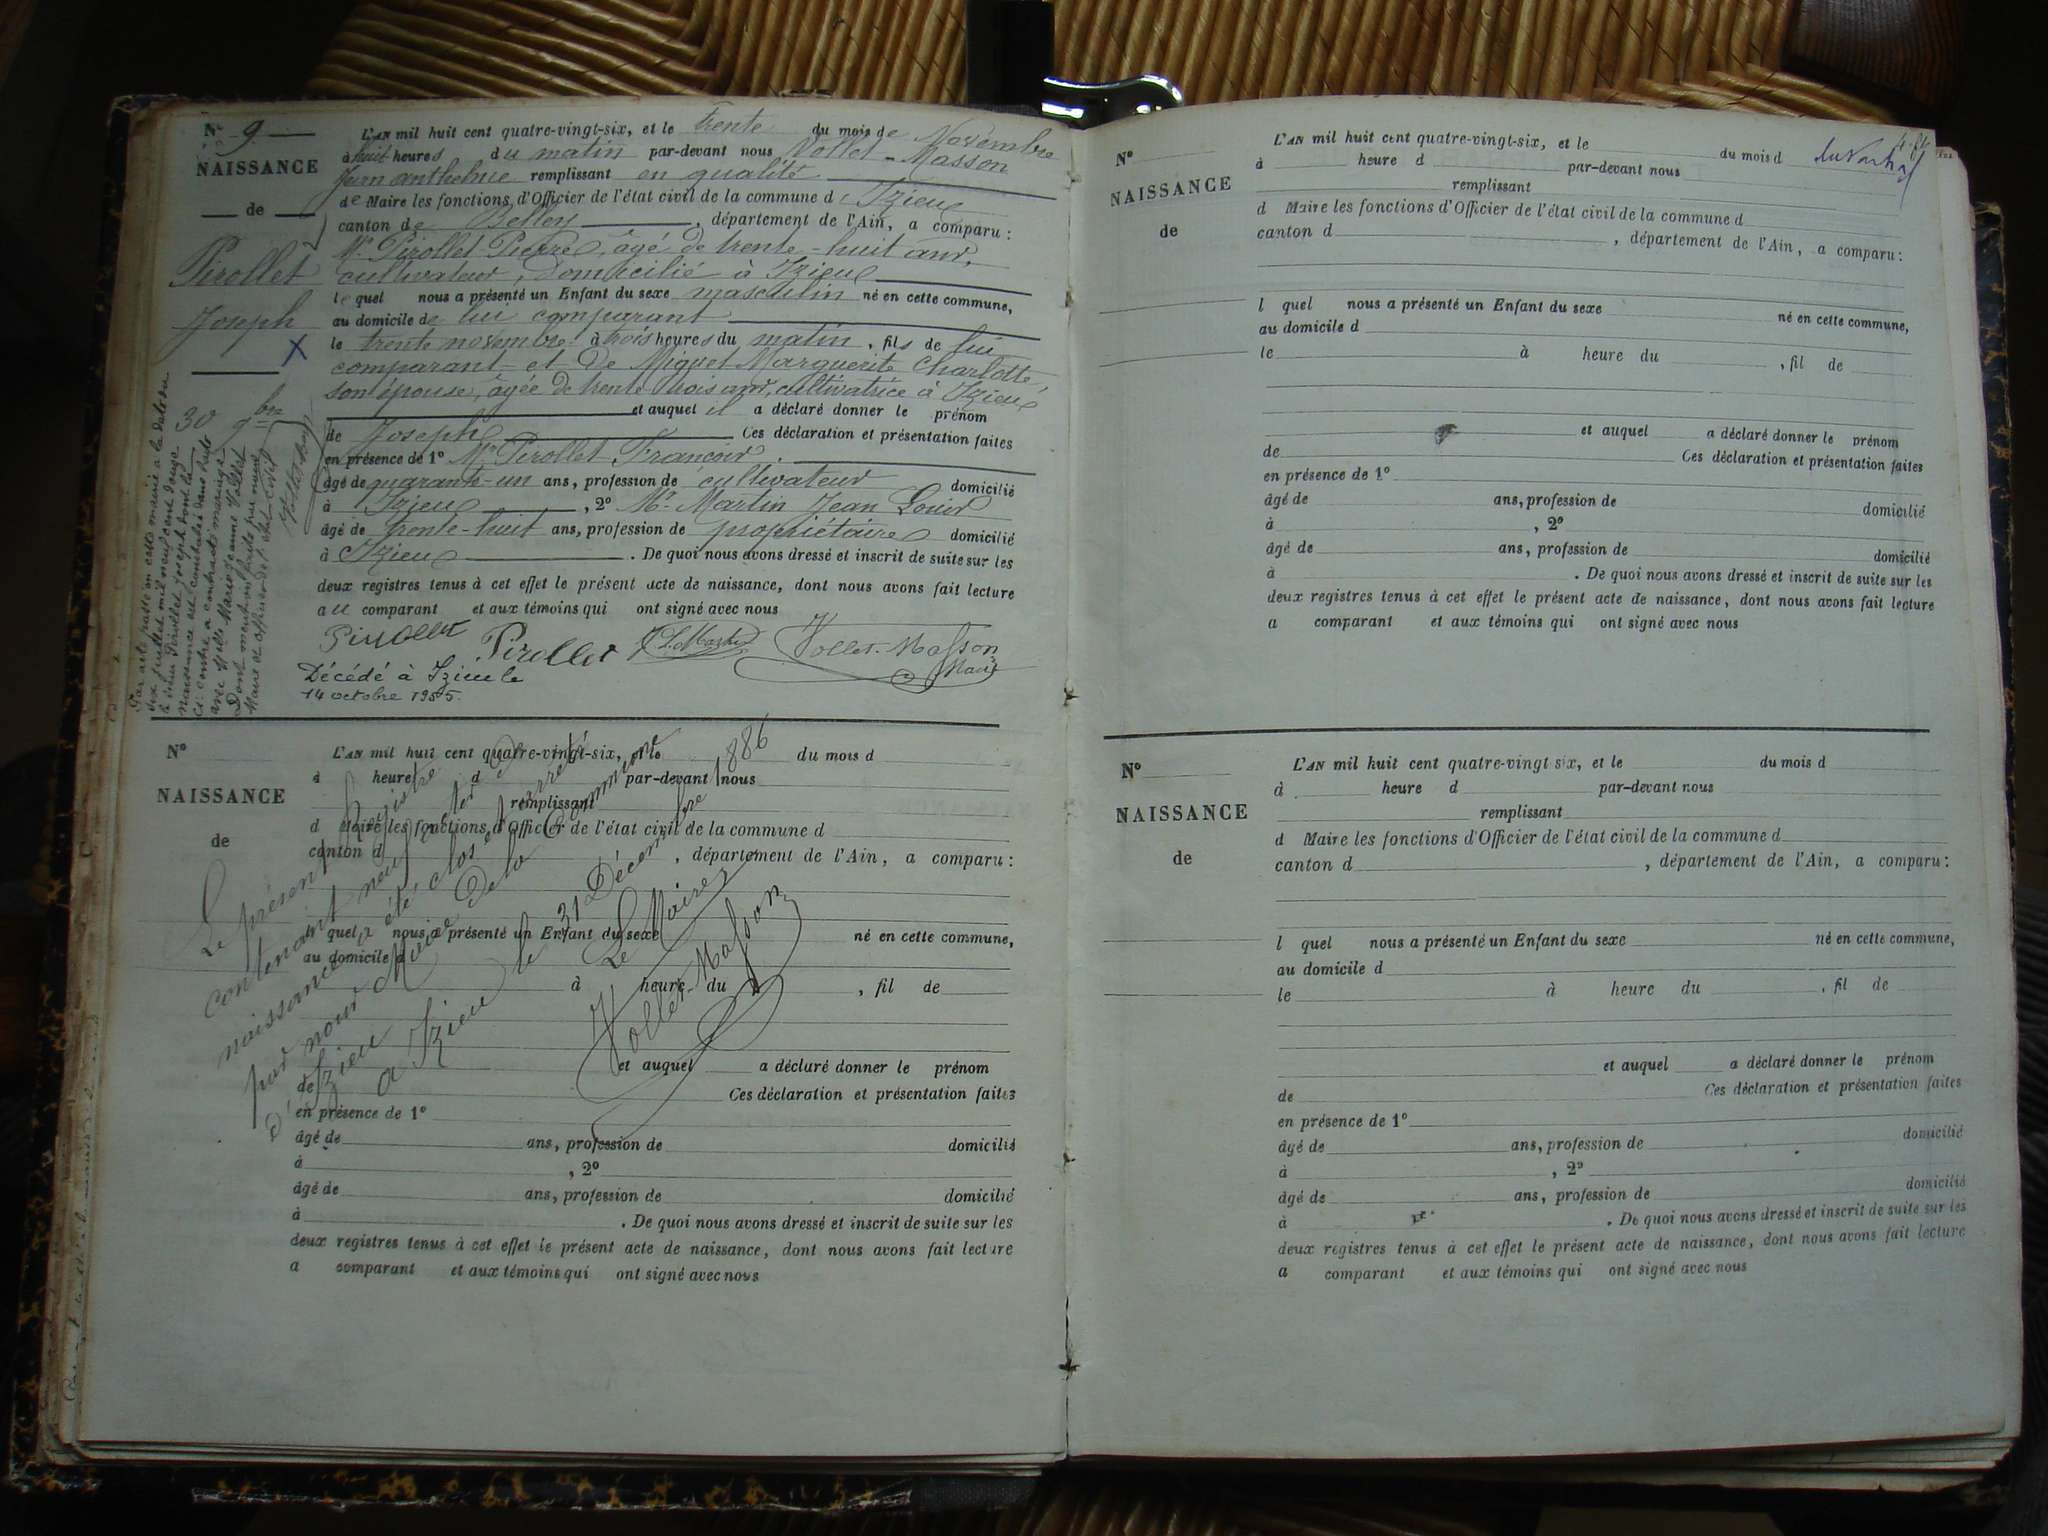 N° 9.
NAISSANCE
de
Pirollet
Joseph
X
30 9bre
L'AN mil huit cent quatre-vingt-six, et le trente du mois de Novembre
à huit heures du matin par-devant nous Vollet-Masson
Jean anthelme remplissant en qualité
de Maire les fonctions d'Officier de l'état civil de la commune d'Izieu
canton de Belley, département de l'Ain, a comparu :
Mr Pirollet Pierre, âgé de trente-huit ans,
cultivateur, domicilié à Izieu
lequel nous a présenté un Enfant du sexe masculin né en cette commune,
au domicile de lui comparant
le trente novembre à trois heures du matin, fils de lui
comparant et de Miguet Marguerite Charlotte,
son épouse, âgée de trente trois ans, cultivatrice à Izieu
et auquel il a déclaré donner le prénom
de Joseph Ces déclaration et présentation faites
en présence de 1° Mr Pirollet François,
âgé de quarante-un ans, profession de cultivateur domicilié
à Izieu, 2° Mr Martin Jean Louis
âgé de trente-huit ans, profession de propriétaire domicilié
à Izieu. De quoi nous avons dressé et inscrit de suite sur les
deux registres tenus à cet effet le présent acte de naissance, dont nous avons fait lecture
au comparant et aux témoins qui ont signé avec nous
Pirollet Pirollet J. L. Martin Vollet-Masson
Maire
Décédé à Izieu le
14 octobre 1955.
Par acte passé en cette mairie à la date du
dix juillet mil neuf cent douze
le sieur Pirollet Joseph dont la
naissance est constatée dans l'acte
ci-contre, a contracté mariage
avec Melle Marie Jeanne Vollet
Dont mention faite par nous
Maire et officier de l'état-civil
N°
NAISSANCE
de
L'AN mil huit cent quatre-vingt-six, et le du mois d
à heure d par-devant nous
remplissant
d Maire les fonctions d'Officier de l'état civil de la commune d
canton d , département de l'Ain, a comparu :
l quel nous a présenté un Enfant du sexe né en cette commune,
au domicile d
à heure du , fil de
et auquel a déclaré donner le prénom
de Ces déclaration et présentation faites
en présence de 1°
âgé de ans, profession de domicilié
à , 2°
âgé de ans, profession de domicilié
à . De quoi nous avons dressé et inscrit de suite sur les
deux registres tenus à cet effet le présent acte de naissance, dont nous avons fait lecture
a comparant et aux témoins qui ont signé avec nous
Le présent Registre de 1886
contenant neuf actes de
naissance a été clos et arrêté
par nous Maire de la Commune
d'Izieu
à Izieu le 31 Décembre
Le Maire,
Vollet-Masson
N°
NAISSANCE
de
L'AN mil huit cent quatre-vingt-six, et le du mois d
à heure d par-devant nous
remplissant
d Maire les fonctions d'Officier de l'état civil de la commune d
canton d , département de l'Ain, a comparu :
l quel nous a présenté un Enfant du sexe né en cette commune,
au domicile d
le à heure du , fil de
et auquel a déclaré donner le prénom
de Ces déclaration et présentation faites
en présence de 1°
âgé de ans, profession de domicilié
à , 2°
âgé de ans, profession de domicilié
à . De quoi nous avons dressé et inscrit de suite sur les
deux registres tenus à cet effet le présent acte de naissance, dont nous avons fait lecture
a comparant et aux témoins qui ont signé avec nous
N°
NAISSANCE
de
L'AN mil huit cent quatre-vingt six, et le du mois d
à heure d par-devant nous
remplissant
d Maire les fonctions d'Officier de l'état civil de la commune d
canton d , département de l'Ain, a comparu :
l quel nous a présenté un Enfant du sexe né en cette commune,
au domicile d
le à heure du , fil de
et auquel a déclaré donner le prénom
de Ces déclaration et présentation faites
en présence de 1°
âgé de ans, profession de domicilié
à , 2°
âgé de ans, profession de domicilié
à . De quoi nous avons dressé et inscrit de suite sur les
deux registres tenus à cet effet le présent acte de naissance, dont nous avons fait lecture
a comparant et aux témoins qui ont signé avec nous